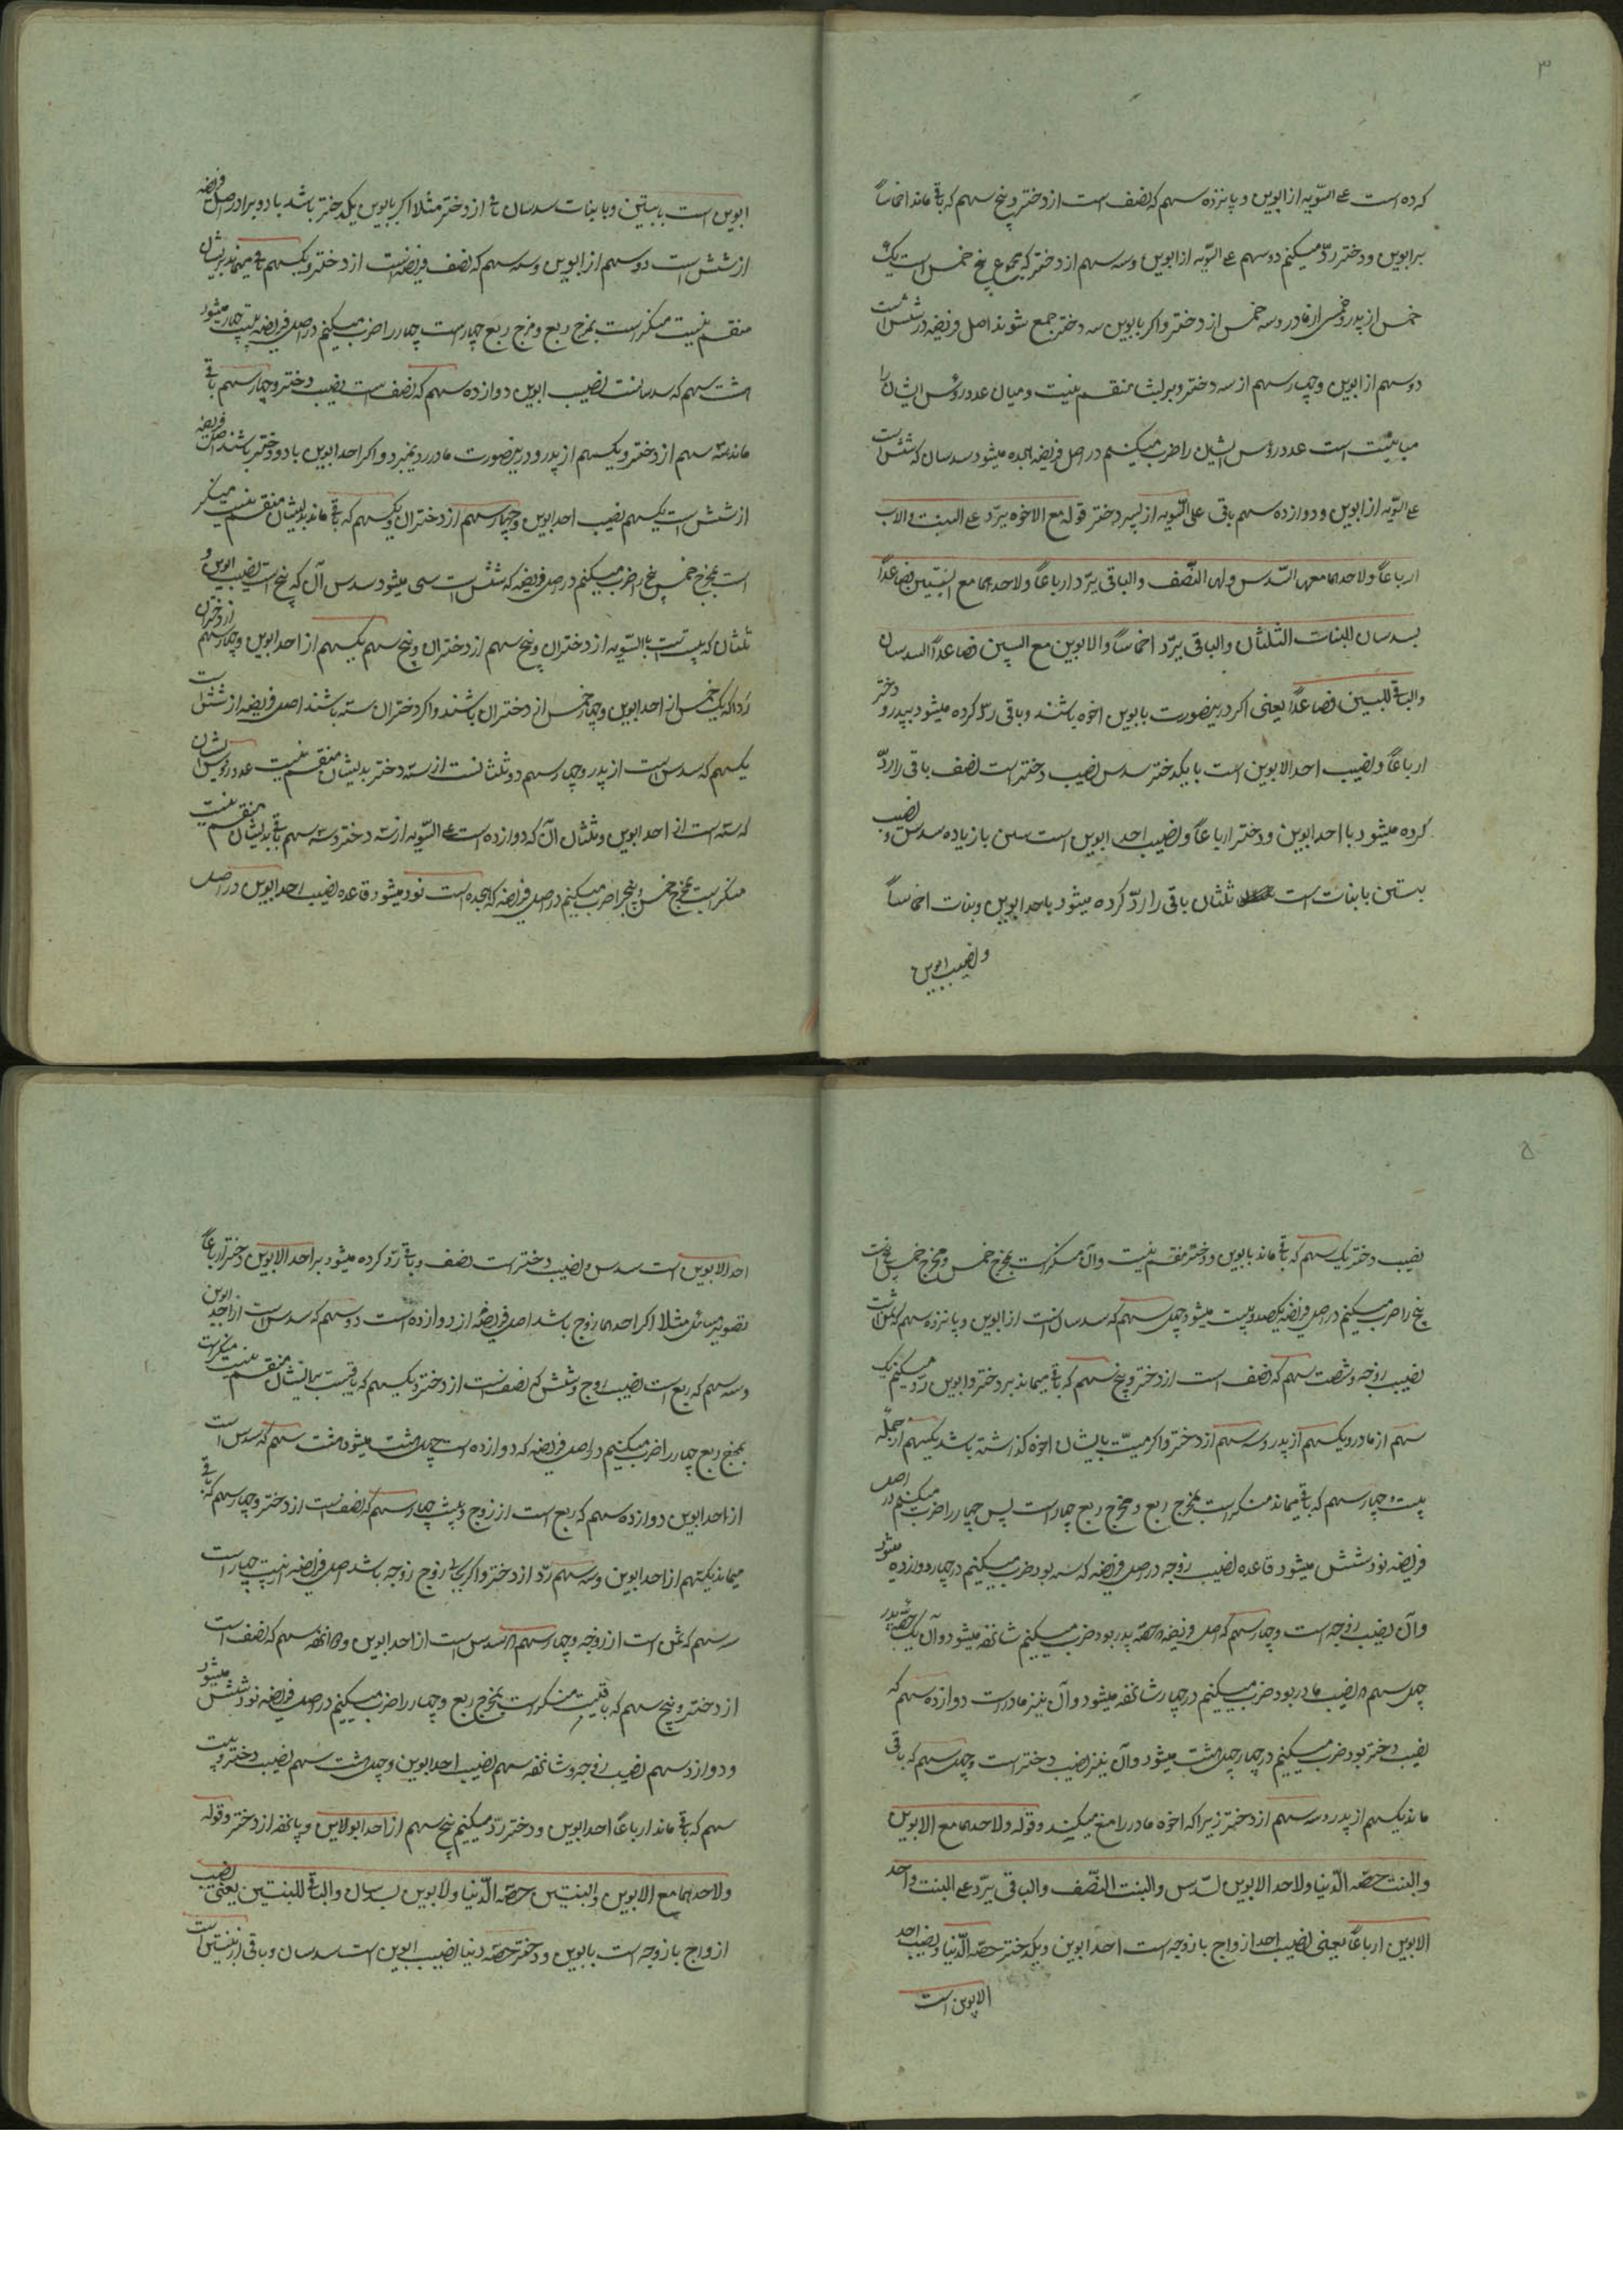 ۳
که ده است علی السّویه از ابوین و پانزده سهم که نصف است از دختر و پنج سهم که باقی ماند اخماساً
بر ابوین و دختر ردّ میکنم دو سهم علی السّویه از ابوین و سه سهم از دختر که مجموع پنج خمس است یک
خمس از پدر و خمسی از مادر و سه خمس از دختر و اگر بابوین سه دختر جمع شوند اصل فریضه در شش است
دو سهم از ابوین و چهار سهم از سه دختر و بر ایشان منقسم نیست و میان عدد روس ایشان را
مباینت است عدد روس ایشان را ضرب میکنیم در اصل فریضه هجده میشود سدسان که شش است
علی السّویه از ابوین و دوازده سهم باقی علی السّویه از پسر دختر قوله مع الاخوه یردّ علی البنت و الاب
ارباعاً و لاحدهما معها السّدس و لها النّصف و الباقی یردّ ارباعاً و لاحدهما مع البنتین فصاعداً
لسدسان للبنات الثلثان و الباقی یردّ اخماساً و الابوین مع البنین فصاعداً السدسان
و الباقی للبنین فصاعداً یعنی اگر درینصورت بابوین اخوه باشند و باقی ردّ کرده میشود بپدر و دختر
ارباعاً و نصیب احد الابوین است با یکدختر سدس نصیب دختر است نصف باقی را ردّ
کرده میشود با احد ابوین و دختر ارباعاً و نصیب احد ابوین است بنتین با زیاده سدس و نصیب
بنتین با بنات است ثلثان باقی را ردّ کرده میشود باحد ابوین و بنات اخماساً
و نصیب ابوین
ابوین است با بنتین و با بنات سدسان باقی از دختر مثلا اگر بابوین یکدختر باشد با دو برادر اصل فریضه
از شش است دو سهم از ابوین و سه سهم که نصف فریضه است از دختر و یکسهم باقی میماند بر ایشان
منقسم نیست منکسر است بمخرج ربع و مخرج ربع چهار است چهار را ضرب میکنیم در اصل فریضه بیست چهار میشود
هشت سهم که سدسانست نصیب ابوین دوازده سهم که نصف است نصیب دختر و چهار سهم باقی
ماند سه سهم از دختر و یکسهم از پدر و درینصورت مادر رد نمیبرد و اگر احد ابوین با دو دختر باشند اصل فریضه
از شش است یکسهم نصیب احد ابوین و چهار سهم از دختران و یکسهم که باقی ماند بدیشان منقسم نیست منکسر
است بمخرج خمس پنج را ضرب میکنیم در اصل فریضه که شش است سی میشود سدس آن که پنج است نصیب ابوین و
ثلثان که بیست است بالسّویه از دختران و پنج سهم از دختران و پنج سهم یکسهم از احد ابوین و چهار سهم از دختران
ردا که یک خمس از احد ابوین و چهار خمس از دختران باشند و اگر دختران سته باشند اصل فریضه از شش است
یکسهم که سدس است از پدر و چهار سهم دو ثلثانست از سته دختر بدیشان منقسم نیست عدد روس ایشان
که سته است از احد ابوین و ثلثان آن که دوازده است علی السّویه از سته دختر و سه سهم باقی بدیشان منقسم نیست
منکسر است بمخرج خمس و پنج را ضرب میکنیم در اصل فریضه که هجده است نود میشود قاعده نصیب احد ابوین در اصل
۵
نصیب دختر یک سهم که باقی ماند بابوین و دختر منقسم نیست و آن منکسر است بمخرج خمس و مخرج خمس پنج است
پنج را ضرب میکنیم در اصل فریضه یکصد و بیست میشود چهل سهم که سدسانست از ابوین و پانزده سهم که ثمن است
نصیب زوجه و شصت سهم که نصف است از دختر و پنج سهم که باقی میماند بر دختر و ابوین ردّ میکنیم یک
سهم از مادر و یکسهم از پدر و سه سهم از دختر و اگر میّت بایشان اخوه گذاشته باشد یکسهم از جمله
بیست و چهار سهم که باقی میماند منکسر است بمخرج ربع و مخرج ربع چهار است پس چهار را ضرب میکنیم در اصل
فریضه نود شش میشود قاعده نصیب زوجه در اصل فریضه که سه بود ضرب میکنیم در چهار دوازده میشود
و آن نصیب زوجه است و چهار سهم که اصل فریضه حصّه پدر بود ضرب میکنیم شانزده میشود و آن یک حصّه پدر
چهل سهم نصیب مادر بود ضرب میکنیم در چهار شانزده میشود و آن نیز مادر است دوازده سهم که
نصیب دختر بود ضرب میکنیم در چهار چهل هشت میشود و آن نیز نصیب دختر است و چهل سهم که باقی
ماند یکسهم از پدر و سه سهم از دختر زیرا که اخوه مادر را منع میکنند و قوله و لاحدهما مع الابوین
و البنت حصّه الدّنیا و لاحد الابوین السّدس و البنت النصّف و الباقی یردّ علی البنت و احد
الابوین ارباعاً یعنی نصیب احد ازواج با زوجه است احد ابوین و یکدختر حصّه الدّنیا و نصیب احد
الابوین است
احد الابوین است سدس و نصیب دختر است نصف و باقی ردّ کرده میشود بر احد الابوین و دختر ارباعاً
تصویر مسائل مثلا اگر احدهما زوج باشد اصل فریضه از دوازده است دو سهم که سدس است از احد ابوین
و سه سهم که ربع است نصیب زوج و شش که نصف است از دختر و یکسهم که باقیست بر ایشان منقسم نیست منکسر است
بمخرج ربع چهار را ضرب میکنیم در اصل فریضه که دوازده است چهل هشت میشود هشت سهم که سدس است
از احد ابوین دوازده سهم که ربع است از زوج و بیست چهار سهم که نصف است از دختر و چهار سهم که باقی
میماند یکسهم از احد ابوین و سه سهم ردّ از دختر و اگر بجای زوج زوجه باشد اصل فریضه از بیست چهار است
سه سهم که ثمن است از زوجه و چهار سهم سدس است از احد ابوین و دوازده سهم که نصف است
از دختر و پنج سهم که باقیست منکسر است بمخرج ربع و چهار را ضرب میکنیم در اصل فریضه نود و شش میشود
و دوازده سهم نصیب زوجه و شانزده سهم نصیب احد ابوین و چهل هشت سهم نصیب دختر و بیست
سهم که باقی ماند ارباعاً احد ابوین و دختر ردّ میکنیم پنج سهم از احد ابوالابین و پانزده از دختر و قوله
و لاحدهما مع الابوین و البنتین حصّه الدّنیا و لابوین لسدسان و الباقی للبنتین یعنی نصیب
ازواج با زوجه است بابوین و دختر حصّه دنیا نصیب ابوین است سدسان و باقی از بنتین است